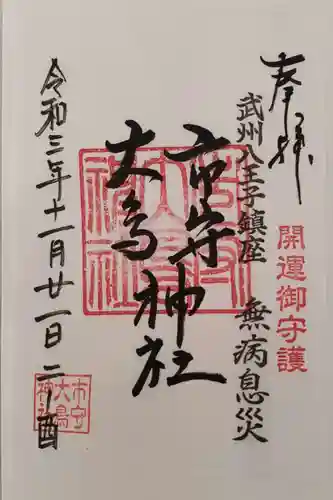 奉拝
開運御守護
武州八王子鎮座 無病息災
市守神社
大鳥
令和三年十一月廿一日 二ノ酉
市守
大鳥
神社